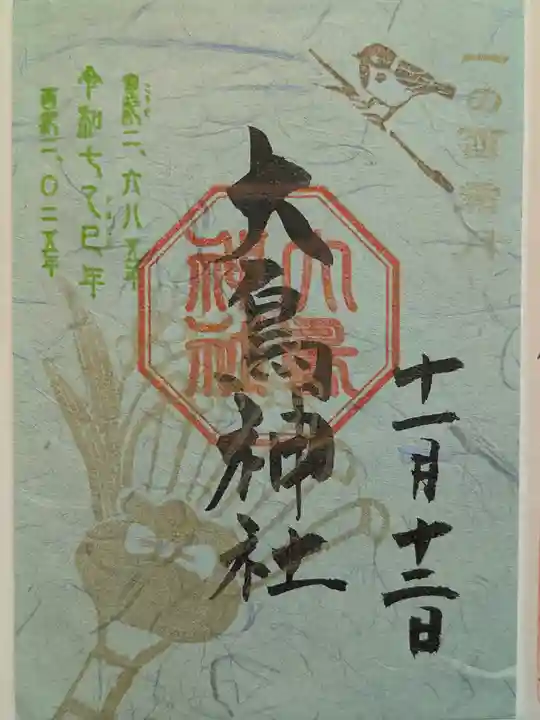 一の酉
十一月十二日
大鳥神社
大鳥
神社
皇紀二、六八五年
令和七乙巳年
西暦二、〇二五年